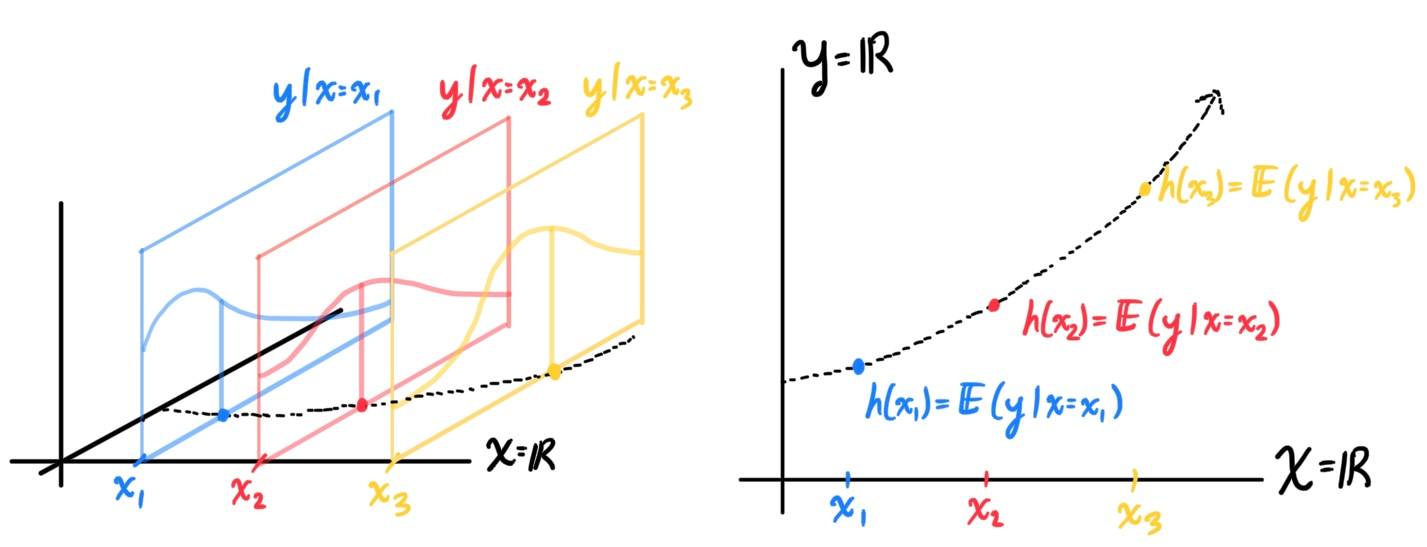 y|x=x₁ y|x=x₂ y|x=x₃
X=ℝ
x₁ x₂ x₃
Y=ℝ
h(x₃)=𝔼(y|x=x₃)
h(x₂)=𝔼(y|x=x₂)
h(x₁)=𝔼(y|x=x₁)
X=ℝ
x₁ x₂ x₃